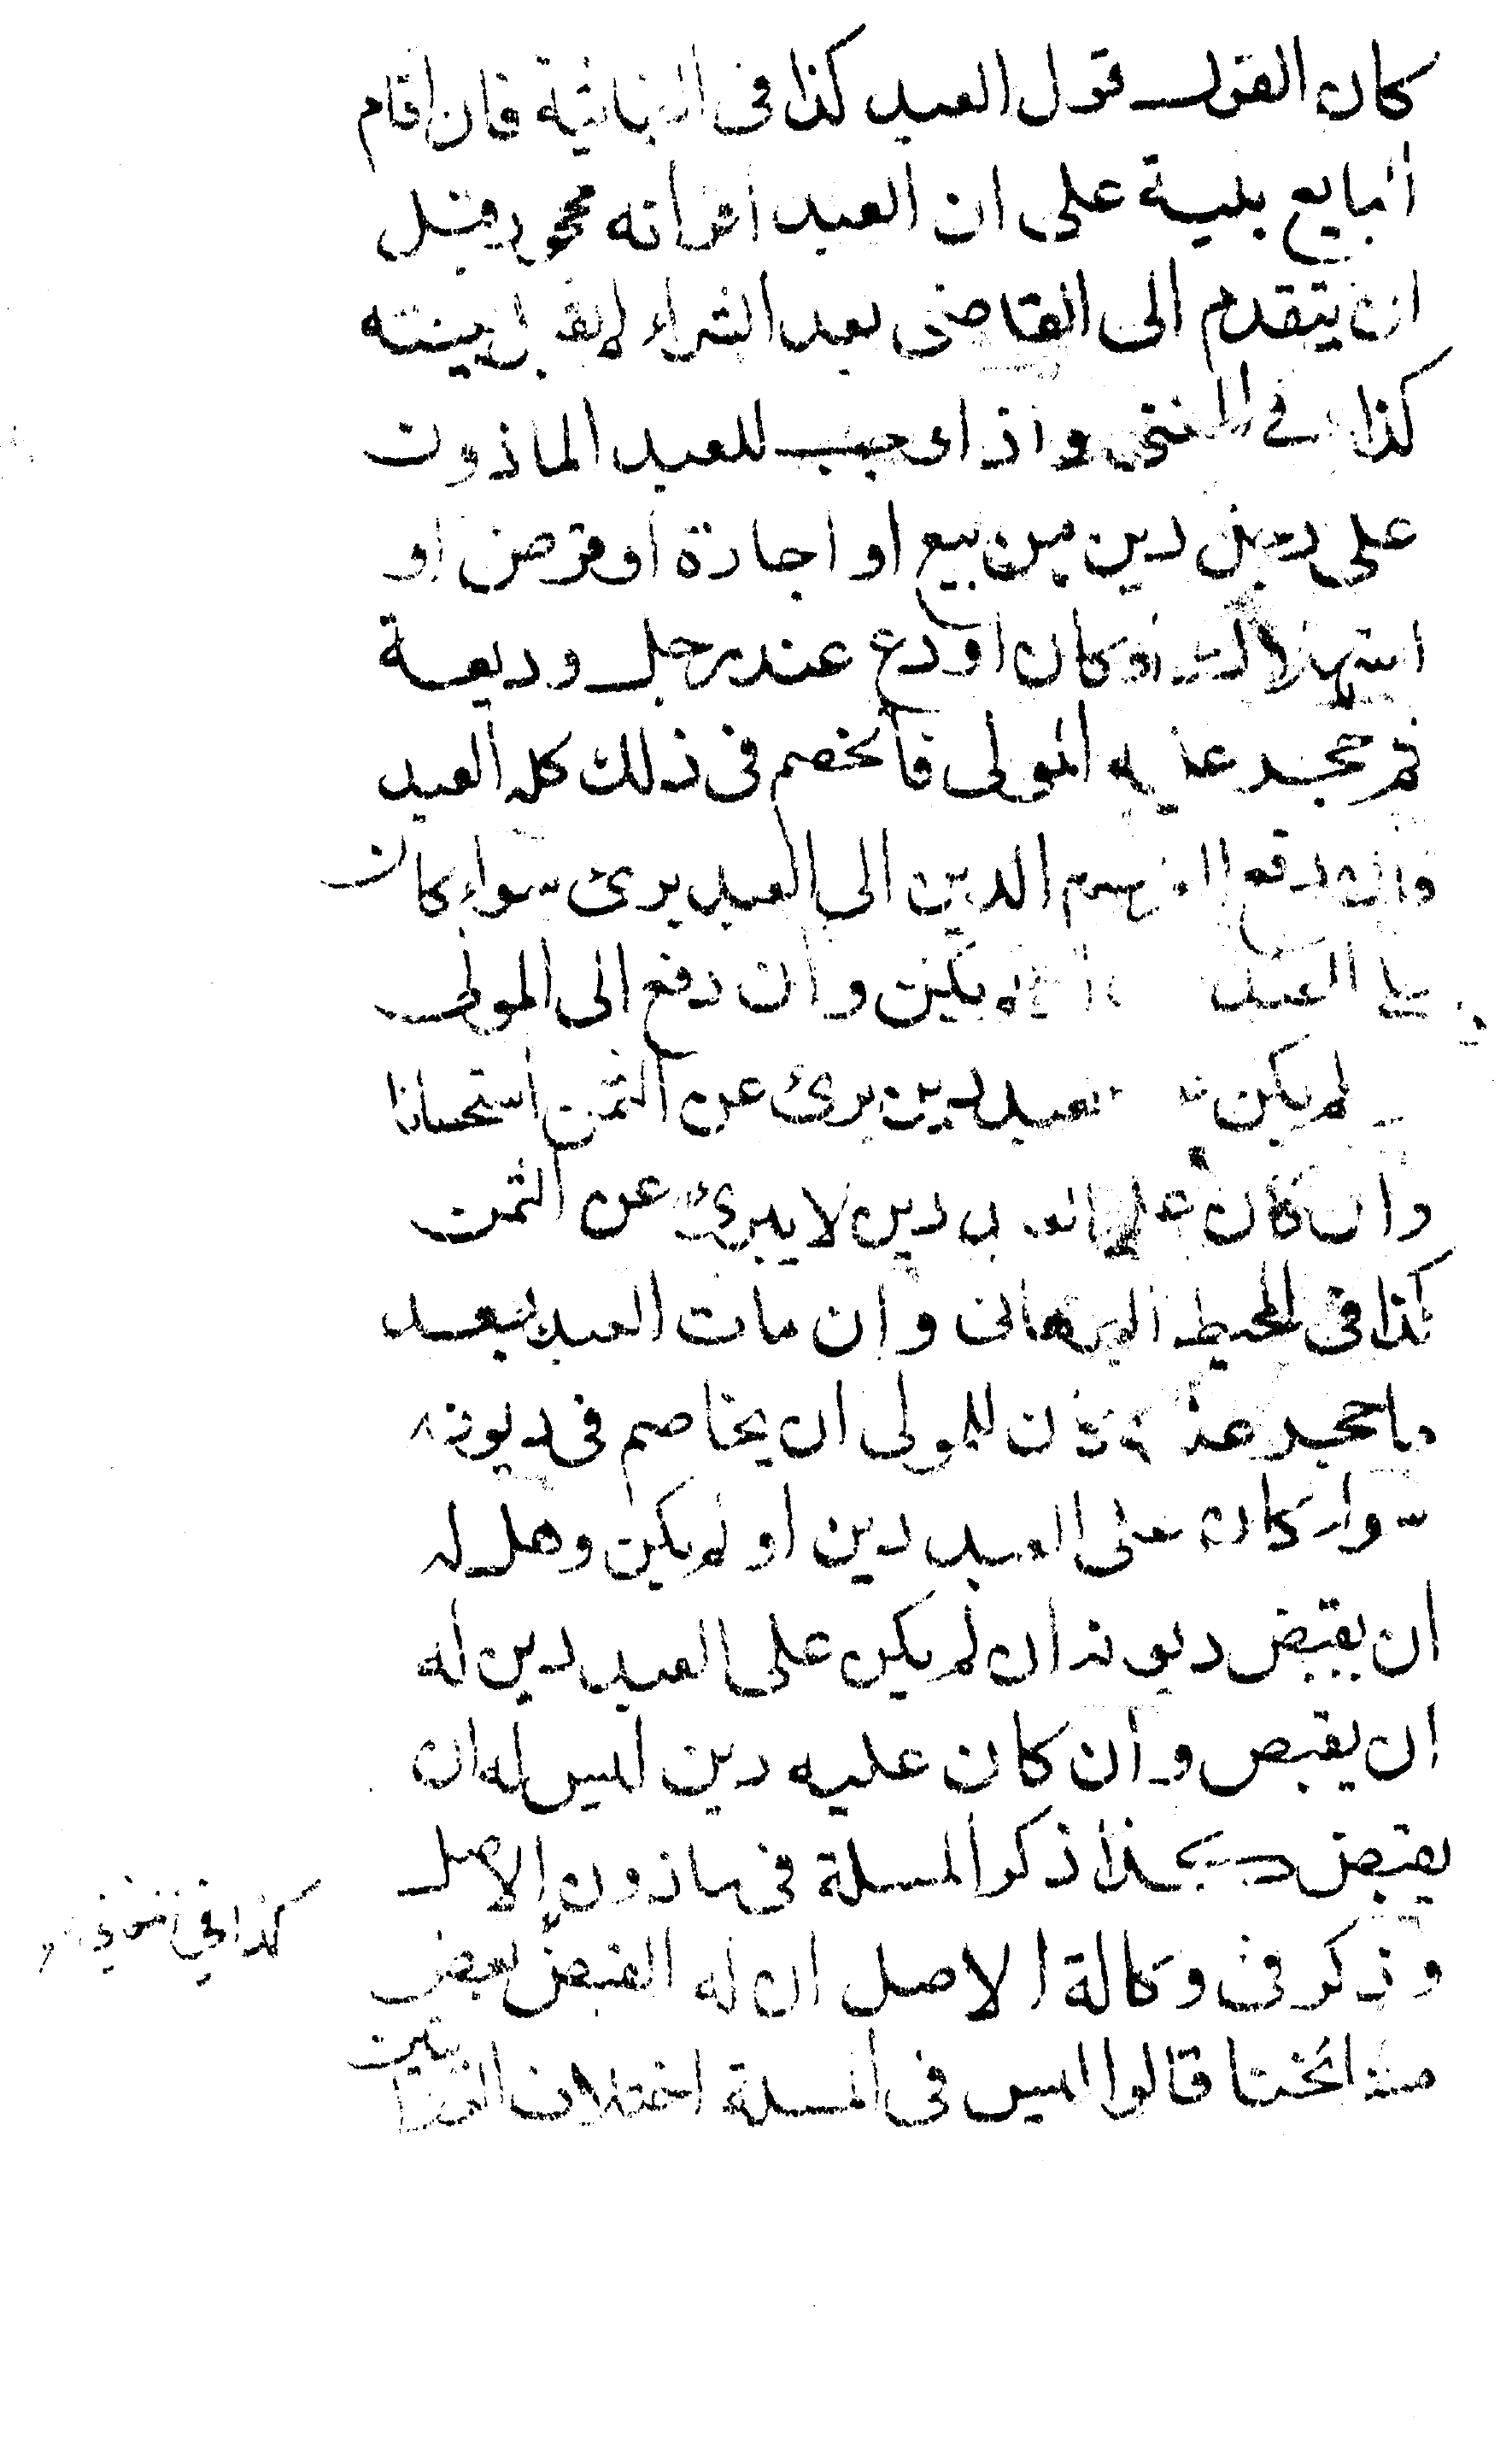 كان القول قول العبد كذا فى الخانية فان اقام
البايع بينة على ان العبد اقر انه محجور قبل
ان يتقدم الى القاضى بعد الشراء لا يقبل بينته
كذا فى المغنى واذا وجب للعبد الماذون
على رجل دين من بيع او اجارة او قرض او
استهلاك او كان اودع عند رجل وديعة
ثم حجر عليه المولى فالخصم فى ذلك كله العبد
وان دفع الغريم الدين الى العبد برئ سواء كان
على العبد يكن وان دفع الى المولى
لم يكن العبد دين برئ عن الثمن استحسانا
وان كان على العبد دين لا يبرئ عن الثمن
كذا فى المحيط البرهانى وان مات العبد بعد
ما حجر عليه كان للمولى ان يخاصم فى ديونه
سواء كان على العبد دين او لم يكن وهل له
ان يقبض ديونه ان لم يكن على العبد دين له
ان يقبض وان كان عليه دين ليس له ان
يقبض هكذا ذكر المسلة فى ماذون الاصل
وذكر فى وكالة الاصل ان له القبض بعض
مشائخنا قالوا ليس فى المسلة اختلاف
كذا فى